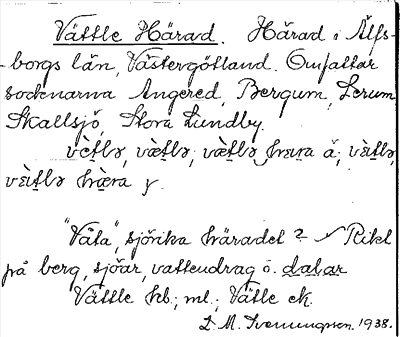 Vättle Härad. Härad i Älfs-
borgs län, Västergötland. Omfattar
socknarna Angered, Bergum, Lerum
Skallsjö, Stora Lundby.
vèt̠lə, væ̀t̠lə, væ̀t̠lə hæɪra ǎ; vèit̠lə,
vèit̠lə hæ̀ra γ
"Väta", sjörika häradet? Rikt
på berg, sjöar, vattendrag o. dalar
Vättle hb.; ml.; Vätle ek.
D. M. Svenungsson. 1938.